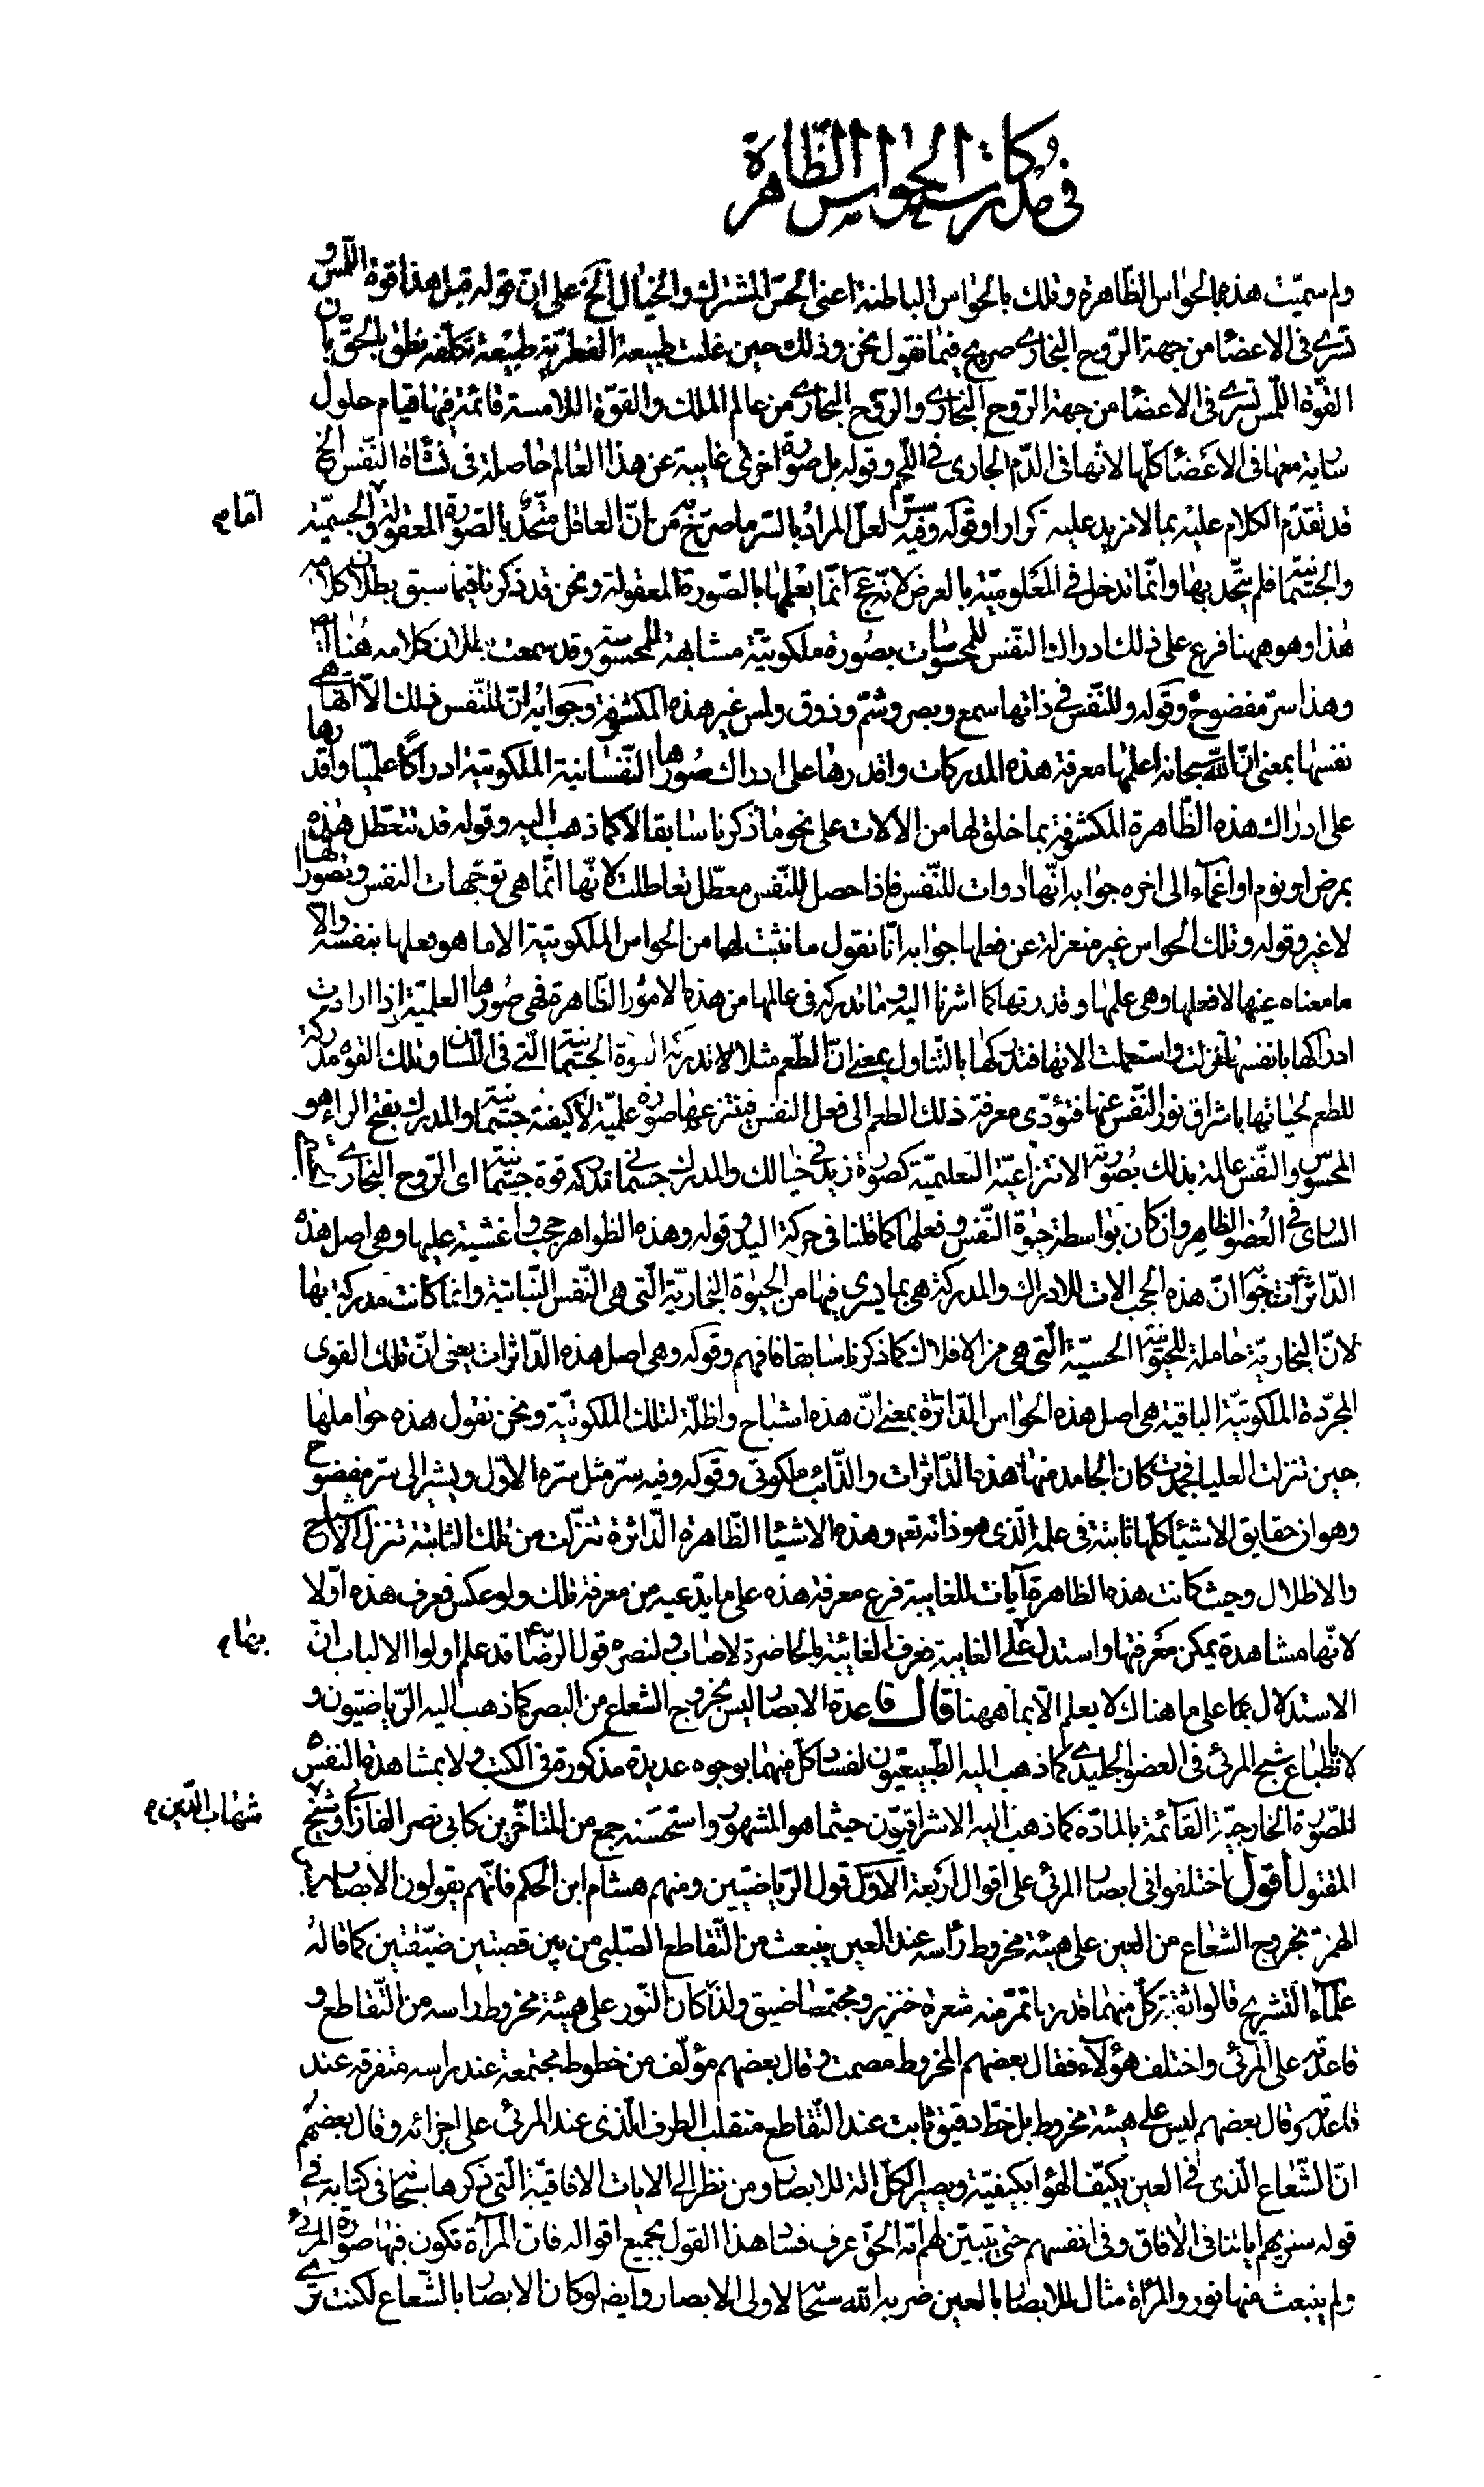 في مدركات الحواس الظاهرة
ولم سمّيت هذه بالحواس الظّاهرة وتلك بالحواس الباطنة اعني الحسّ المشترك والخيال الخ على انّ قوله قبل هذا قوة اللمس و
تسري في الاعضا من جهة الرّوح البخاري صريح فيما نقول نحن وذلك حين غلبت طبيعة الفطريّة طبيعة تكلّفه نطق بالحقّ بان
القوّة اللّمس تسري في الاعضا من جهة الرّوح البخاري والرّوح البخاري من عالم الملك والقوّة اللامسة قائمة فيها قيام حلول
سارية معها في الاعضا كلّها لانّها في الدّم الجاري في اللّحم وقوله بل صورة اخرى غايبة عن هذا العالم حاصلة في نشأة النّفس الخ
قد تقدّم الكلام عليه بما لا مزيد عليه كرارا وقوله وفيه سرّ لعلّ المراد بالسّر ما صرّح به من انّ العاقل متّحد بالصّورة المعقولة والجسميّة
امّا م
والجسمانيّة فلم يتّحد بها وانّما تدخل في المعلوميّة بالعرض لانّه انّما يعلمها بالصّورة المعقولة ونحن قد ذكرنا فيما سبق بطلان كلامه
هذا وهو ههنا فرع على ذلك ادراك النّفس للمحسوسات بصورة ملكوتيّة مشابهة للمحسوسة وقد سمعت بطلان كلامه هناك
وهذا سرّ مفضوح وقوله وللنّفس في ذاتها سمع وبصر وشمّ وذوق ولمس غير هذه المكشوفة وجوابه انّ للنّفس ذلك الّا انّها هي
نفسها بمعنى انّ اللّه سبحانه اعلمها معرفة هذه المدركات واقدرها على ادراك صورها النّفسانية الملكوتية ادراكًا علميّا واقدرها
على ادراك هذه الظّاهرة المكشوفة بما خلق لها من الالات على نحو ما ذكرنا سابقا لا كما ذهب اليه وقوله قد تتعطّل هذه
بمرض او نوم او اغماء الى اخره جوابه انّها ادوات للنّفس فاذا حصل للنّفس معطّل تعاطلت لانّها انّما هي توجّهات النفس وتصوراتها
لا غير وقوله وتلك الحواس غير منعزلة عن فعلها جوابه انّا نقول ما نثبت لها من الحواس الملكوتية الا ما هو فعلها بنفسها والّا
ما معناه عينها لا فعلها وهي علمها وقدرتها كما اشرنا اليه وما تدركه في عالمها من هذه الامور الظّاهرة فهي صورها العلميّة اذا ارادت
ادراكها بانفسها تنزلت واستعملت الاتها فتدركها بالتّناول بمعنى انّ الطّعم مثلا لا تدركه القوة الجسمانيّة الّتي في اللّسان وتلك القوة مدركة
للطعم لحياتها باشراق نور النّفس عنها فتؤدّي معرفة ذلك الطعم الى فعل النفس فينتزع عنها صورة علميّة لا كيفية جسمانيّة والمدرك بفتح الراء هو
المحسوس والنّفس عالمة بذلك بصورته الانتزاعيّة التعليميّة كصورة زيد في خيالك والمدرك جسماني تدركه قوة جسمانيّة اي الرّوح البخاري
الساري في العضو الظاهر وان كان بواسطة حيوة النّفس وفعلها كما قلنا في حركة اليد وقوله وهذه الظواهر حجب واغشية عليها وهي اصل هذه
الدّاثرات جوابه انّ هذه الحجب الات للادراك والمدركة هي بما يسري فيها من الحيوة البخاريّة الّتي هي النّفس النّباتية وانما كانت مدركة بها
لانّ البخاريّة حاملة للحيوانيّة الحسيّة الّتي هي من الافلاك كما ذكرنا سابقا فافهم وقوله وهي اصل هذه الدّاثرات يعني انّ تلك القوى
المجرّدة الملكوتيّة الباقية هي اصل هذه الحواس الدّاثرة بمعنى انّ هذه اشباح واظلّة لتلك الملكوتيّة ونحن نقول هذه حواملها
حين تنزلت العليا فجمدت كان الجامد منها هذه الدّاثرات والذّائب ملكوتي وقوله وفيه سرّ مثل سرّه الاوّل ويشير الى سرّ مفضوح
وهو ان حقايق الاشيا كلّها ثابتة في علمه الّذي هو ذاته تعم وهذه الاشيا الظّاهرة الدّاثرة تنزّلت من تلك الثابتة تنزل الاشباح
والاظلال وحيث كانت هذه الظاهرة آيات للغايبة فرع معرفة هذه على ما يدّعيه من معرفة تلك ولو عكس فعرف هذه اوّلا
لانّها مشاهدة يمكن معرفتها واستدل بها على الغايبة فعرف الغائبة بالحاضرة لاصاب ولنصره قول الرضا ع قد علم اولوا الالباب انّ
بهما م
الاستدلال بما على ما هناك لا يعلم الّا بما ههنا قال قاعدة الابصار ليس بخروج الشعاع من البصر كما ذهب اليه الرّياضيّون و
لا بانطباع شبح المرئي في العضو الجليدي كما ذهب اليه الطّبيعيّون لفساد كلّ منهما بوجوه عديدة مذكورة في الكتب ولا بمشاهدة النفس
للصّورة الخارجيّة القآئمة بالمادّة كما ذهب اليه الاشراقيّون حيثما هو المشهور واستحسنه جمع من المتأخّرين كابي نصر الفارابي وشيخ
شهاب الدّين م
المقتول اقول اختلفوا في ابصار المرئي على اقوال اربعة الاوّل قول الرّياضيّين ومنهم هشام ابن الحكم فانّهم يقولون الابصار
الهمزة بخروج الشعاع من العين على هيئة مخروط رأسه عند العين ينبعث من التّقاطع الصّليبي من بين قصبتين ضيّقتين كما قاله
علماء التشريح قالوا ثقبة كلّ منهما قدر ما تمرّ منه شعرة خنزير ومجتمعها ضيق ولذا كان النّور على هيئة مخروط راسه من التّقاطع و
قاعدته على المرئي واختلف هؤلآء فقال بعضهم المخروط مصمت وقال بعضهم مؤلّف من خطوط مجتمعة عند راسه متفرقة عند
قاعدته وقال بعضهم ليس على هيئة مخروط بل خطّ دقيق ثابت عند التّقاطع متقلب الطرف الّذي عند المرئي على اجزائه وقال بعضهم
انّ الشّعاع الّذي في العين يكيّف الهوا بكيفيّة ويصير الكل الة للابصار ومن نظر الى الايات الافاقيّة الّتي ذكرها سبحانه في كتابه في
قوله سنريهم اياتنا في الافاق وفي انفسهم حتى يتبيّن لهم انّه الحقّ عرف فساد هذا القول بجميع اقواله فانّ المرآة تكون فيها صورة المرئي
ولم ينبعث منها نور والمرآة مثال للابصار بالعين ضربه اللّه سبحانه لاولي الابصار وايضا لو كان الابصار بالشّعاع لكنت ترى